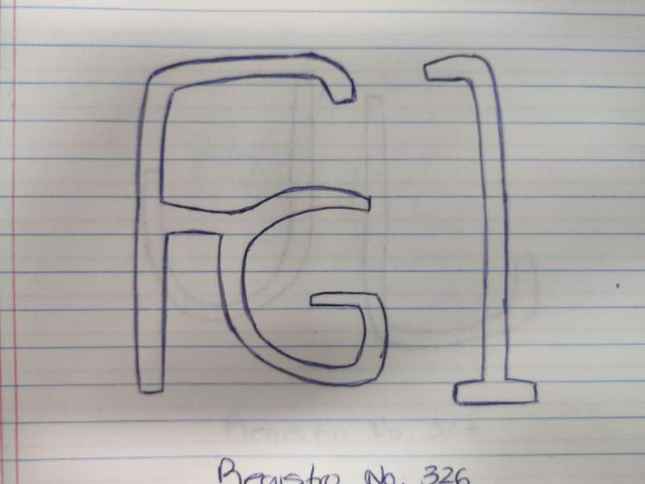 FG 1
Registro No. 326